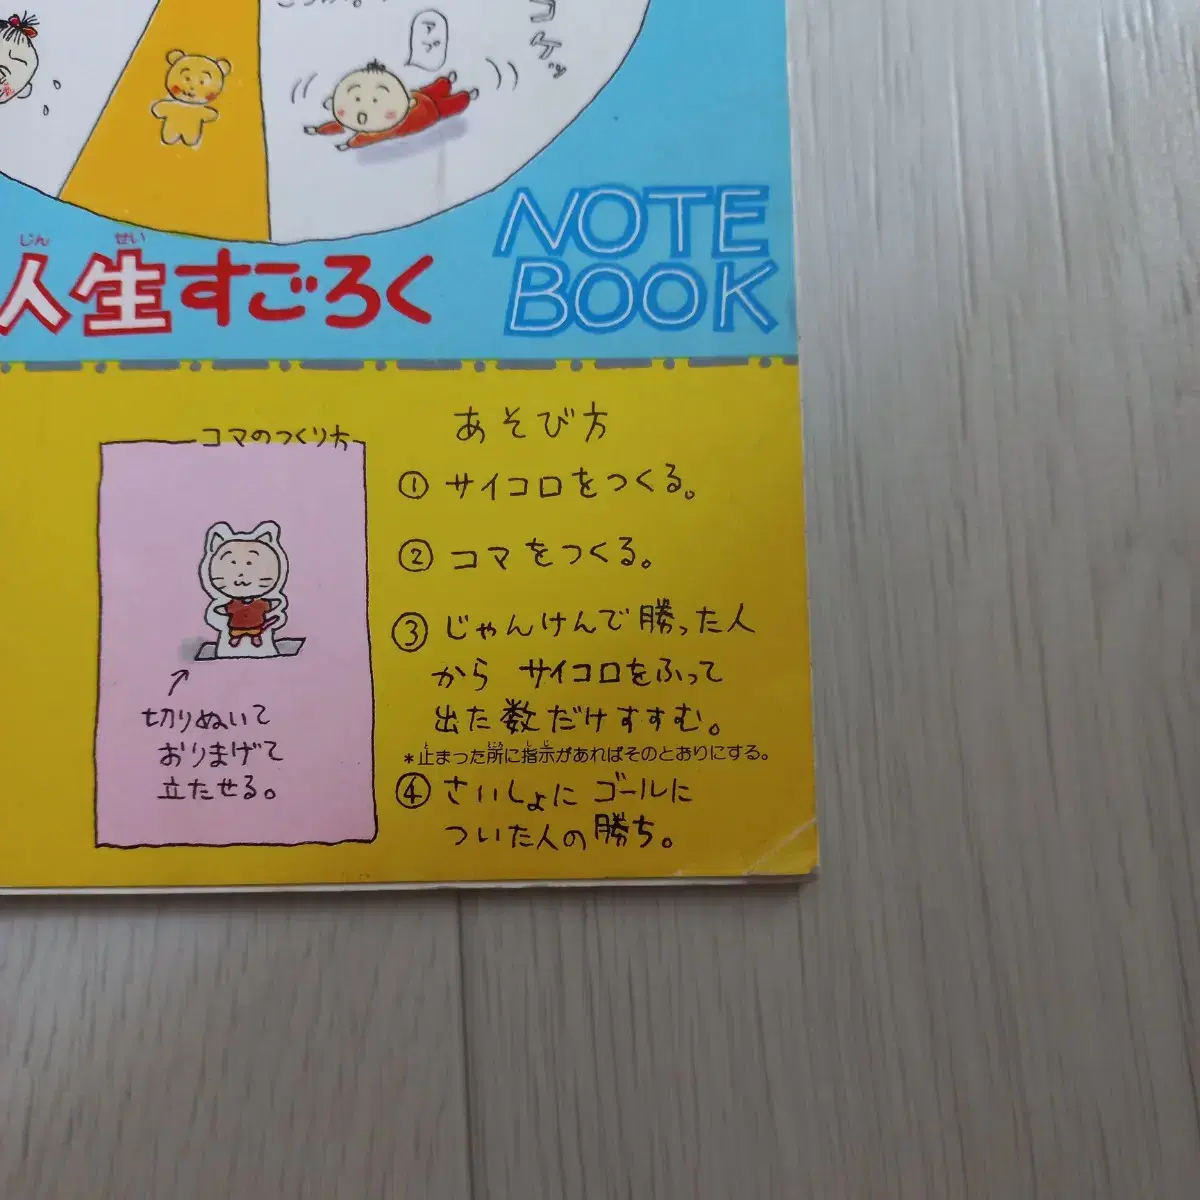 アブ
コケッ
じん せい
人生すごろく
NOTE
BOOK
コマのつくり方
切りぬいて
おりまげて
立たせる。
あそび方
① サイコロをつくる。
② コマをつくる。
③ じゃんけんで勝った人
から サイコロをふって
出た数だけすすむ。
*止まった所に指示があればそのとおりにする。
④ さいしょに ゴールに
ついた人の勝ち。